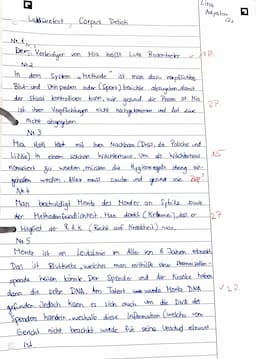 Lina
Lektüretest Corpus Delicti
Nr. 1
Der Verteidiger von Mia heißt Lutz Rosentreter ✓ 1P.
Nr.2
In dem System „Methode" ist man dazu verpflichtet
Blut- und Urinproben oder (Sport) abzugeben, damit
der Staat kontrollieren kann, wie gesund die Person ist. Mia
ist ihren Verpflichtungen nicht nachgegangen und hat
nicht abgegeben 2P
Nr.3
Mia Holl lebt mit ihren Nachbarn (Driss, die Pollsche und
Lizzie) in einem solchen Wächterhaus. Um als Wächterhaus
zu werden, müssen die Hygieneregeln streng ein-
gehalten werden. Alles muss sauber und gesund sein
Nr.4
Man beschuldigt Moritz des Mordes an Sybille sowie
der Methodenfeindlichkeit. Man denkt (Kramer), dass er
Mitglied der R.A.K (Recht auf Krankheit) war. 2P
Nr.5
Moritz ist an Leukämie im Alter von 6 Jahren erkrankt.
Das ist Blutkrebs, welches man mithilfe einer
spende heilen könnte. Der Spender und der Kranke haben
dann die selbe DNA. Am Tatort wurde Moritz DNA
gefunden. Jedoch kann es sich auch um die DNA des
Spenders handeln, weshalb diese Information (welche vom
Gericht nicht beachtet wurde für seine Unschuld relevant
ist. ✓ 2P.